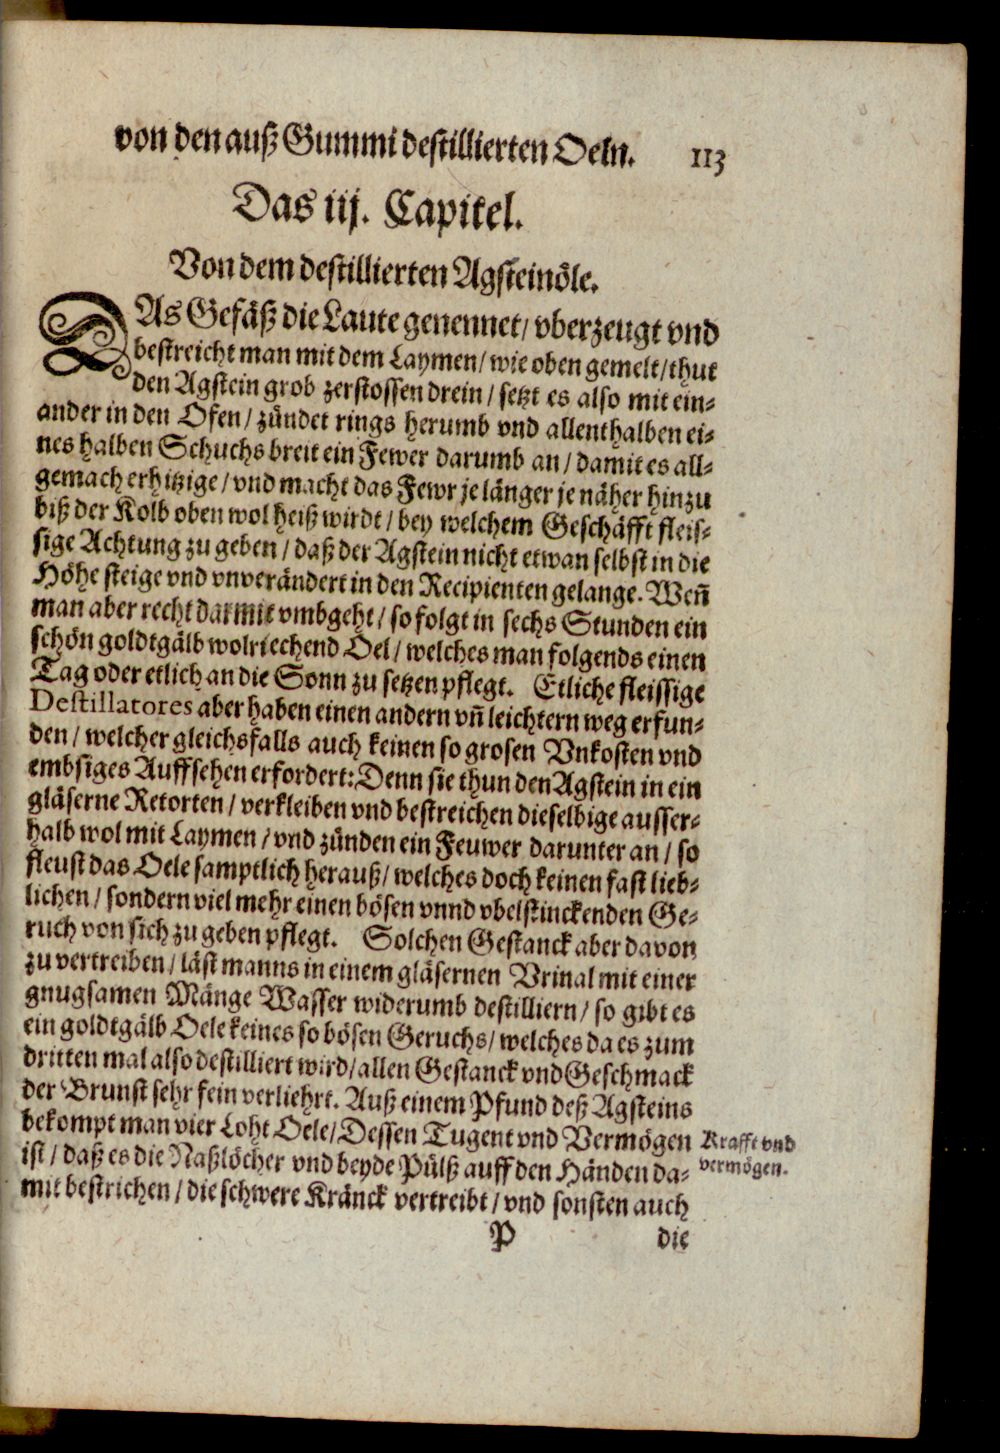 von den auß Gummi destillierten Oeln. 113
Das iij. Capitel.
Von dem destillierten Agsteinöle.
DAs Gefäß die Laute genennet / vberzeugt vnd
bestreicht man mit dem Laymen / wie oben gemelt / thut
den Agstein grob zerstossen drein / setzt es also mit ein⸗
ander in den Ofen / zündet rings herumb vnd allenthalben ei⸗
nes halben Schuchs breit ein Fewer darumb an / damit es all⸗
gemach erhitzige / vnd macht das Fewr je länger je näher hinzu
biß der Kolb oben wol heiß wirdt / bey welchem Geschäfft fleis⸗
sige Achtung zu geben / daß der Agstein nicht etwan selbst in die
Höhe steige vnd vnverändert in den Recipienten gelange. Weñ
man aber recht darmit vmbgeht / so folgt in sechs Stunden ein
schön goldtgälb wolriechend Oel / welches man folgends einen
Tag oder etlich an die Sonn zu setzen pflegt. Etliche fleissige
Destillatores aber haben einen andern vñ leichtern weg erfun⸗
den / welcher gleichsfalls auch keinen so grosen Vnkosten vnd
embsiges Auffsehen erfordert: Denn sie thun den Agstein in ein
gläserne Retorten / verkleiben vnd bestreichen dieselbige ausser⸗
halb wol mit Laymen / vnd zünden ein Feuwer darunter an / so
fleust das Oele samptlich herauß / welches doch keinen fast lieb⸗
lichen / sondern viel mehr einen bösen vnnd vbelstinckenden Ge⸗
ruch von sich zu geben pflegt. Solchen Gestanck aber davon
zu vertreiben / läst manns in einem gläsernen Vrinal mit einer
gnugsamen Mänge Wasser widerumb destilliern / so gibt es
ein goldtgälb Oele keines so bösen Geruchs / welches da es zum
dritten mal also destilliert wird / allen Gestanck vnd Geschmack
der Brunst sehr fein verliehrt. Auß einem Pfund deß Agsteins
bekompt man vier Loht Oele / Dessen Tugent vnd Vermögen
ist / daß es die Naßlöcher vnd beyde Pülß auff den Händen da⸗
mit bestrichen / die schwere Kränck vertreibt / vnd sonsten auch
Krafft vnd
vermögen.
P die